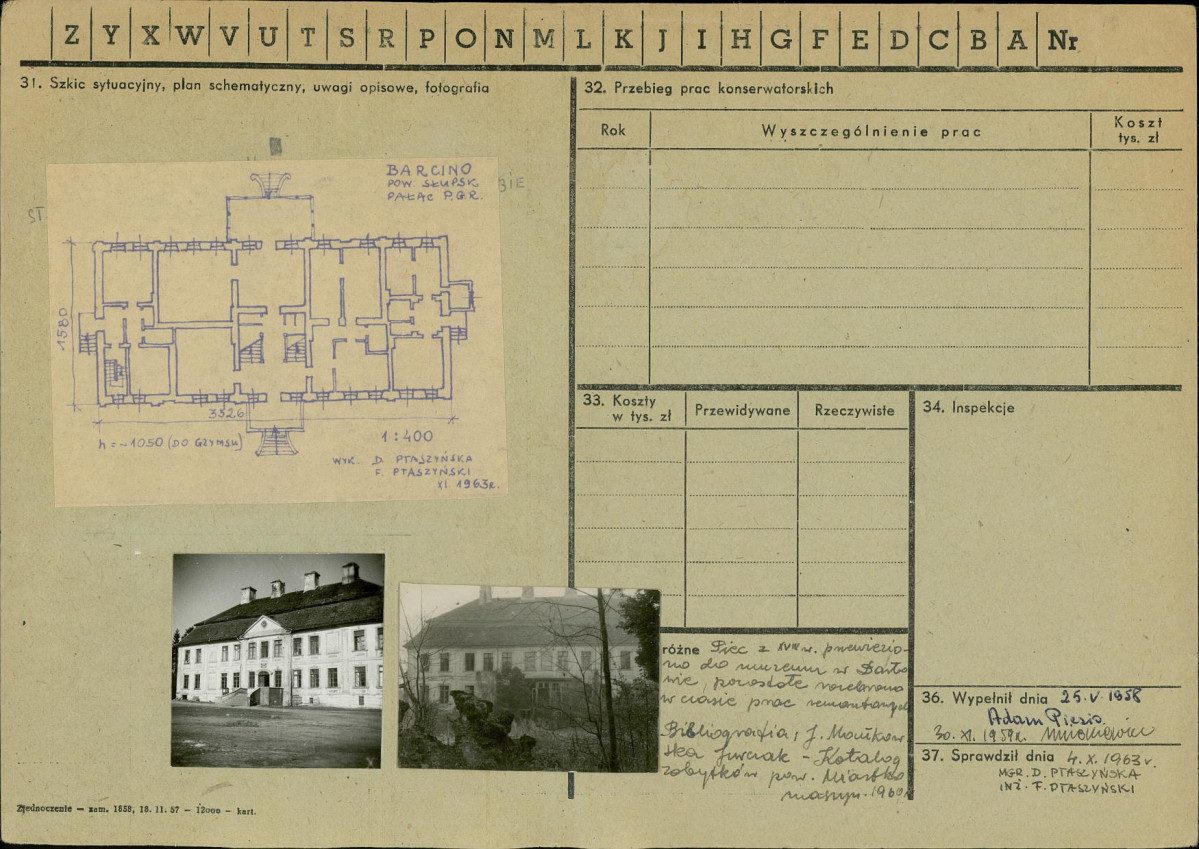 Z Y X W V U T S R P O N M L K J I H G F E D C B A Nr
31. Szkic sytuacyjny, plan schematyczny, uwagi opisowe, fotografia
BARCINO
POW. SŁUPSK
PAŁAC P.G.R.
ST.
BIE
1580
3526
h = ~1050 (DO GZYMSU)
1:400
WYK. D. PTASZYŃSKA
F. PTASZYŃSKI
XI 1963r.
Zjednoczenie — zam. 1858, 18. 11. 57 — 12000 — kart.
32. Przebieg prac konserwatorskich
Rok
Wyszczególnienie prac
Koszt
tys. zł
33. Koszty
w tys. zł
Przewidywane
Rzeczywiste
34. Inspekcje
różne Piec z XVII w. przewiezio-
no do muzeum w Darło-
wie, pozostałe rozebrano
w czasie prac remontowych
Bibliografia: J.
Jurczak - Katalog
zabytków pow. Miastko
maszyn. 1960r
36. Wypełnił dnia 25.V.1958
Adam
30. XI. 1959r.
37. Sprawdził dnia 4. X. 1963r.
MGR. D. PTASZYŃSKA
INŻ. F. PTASZYŃSKI